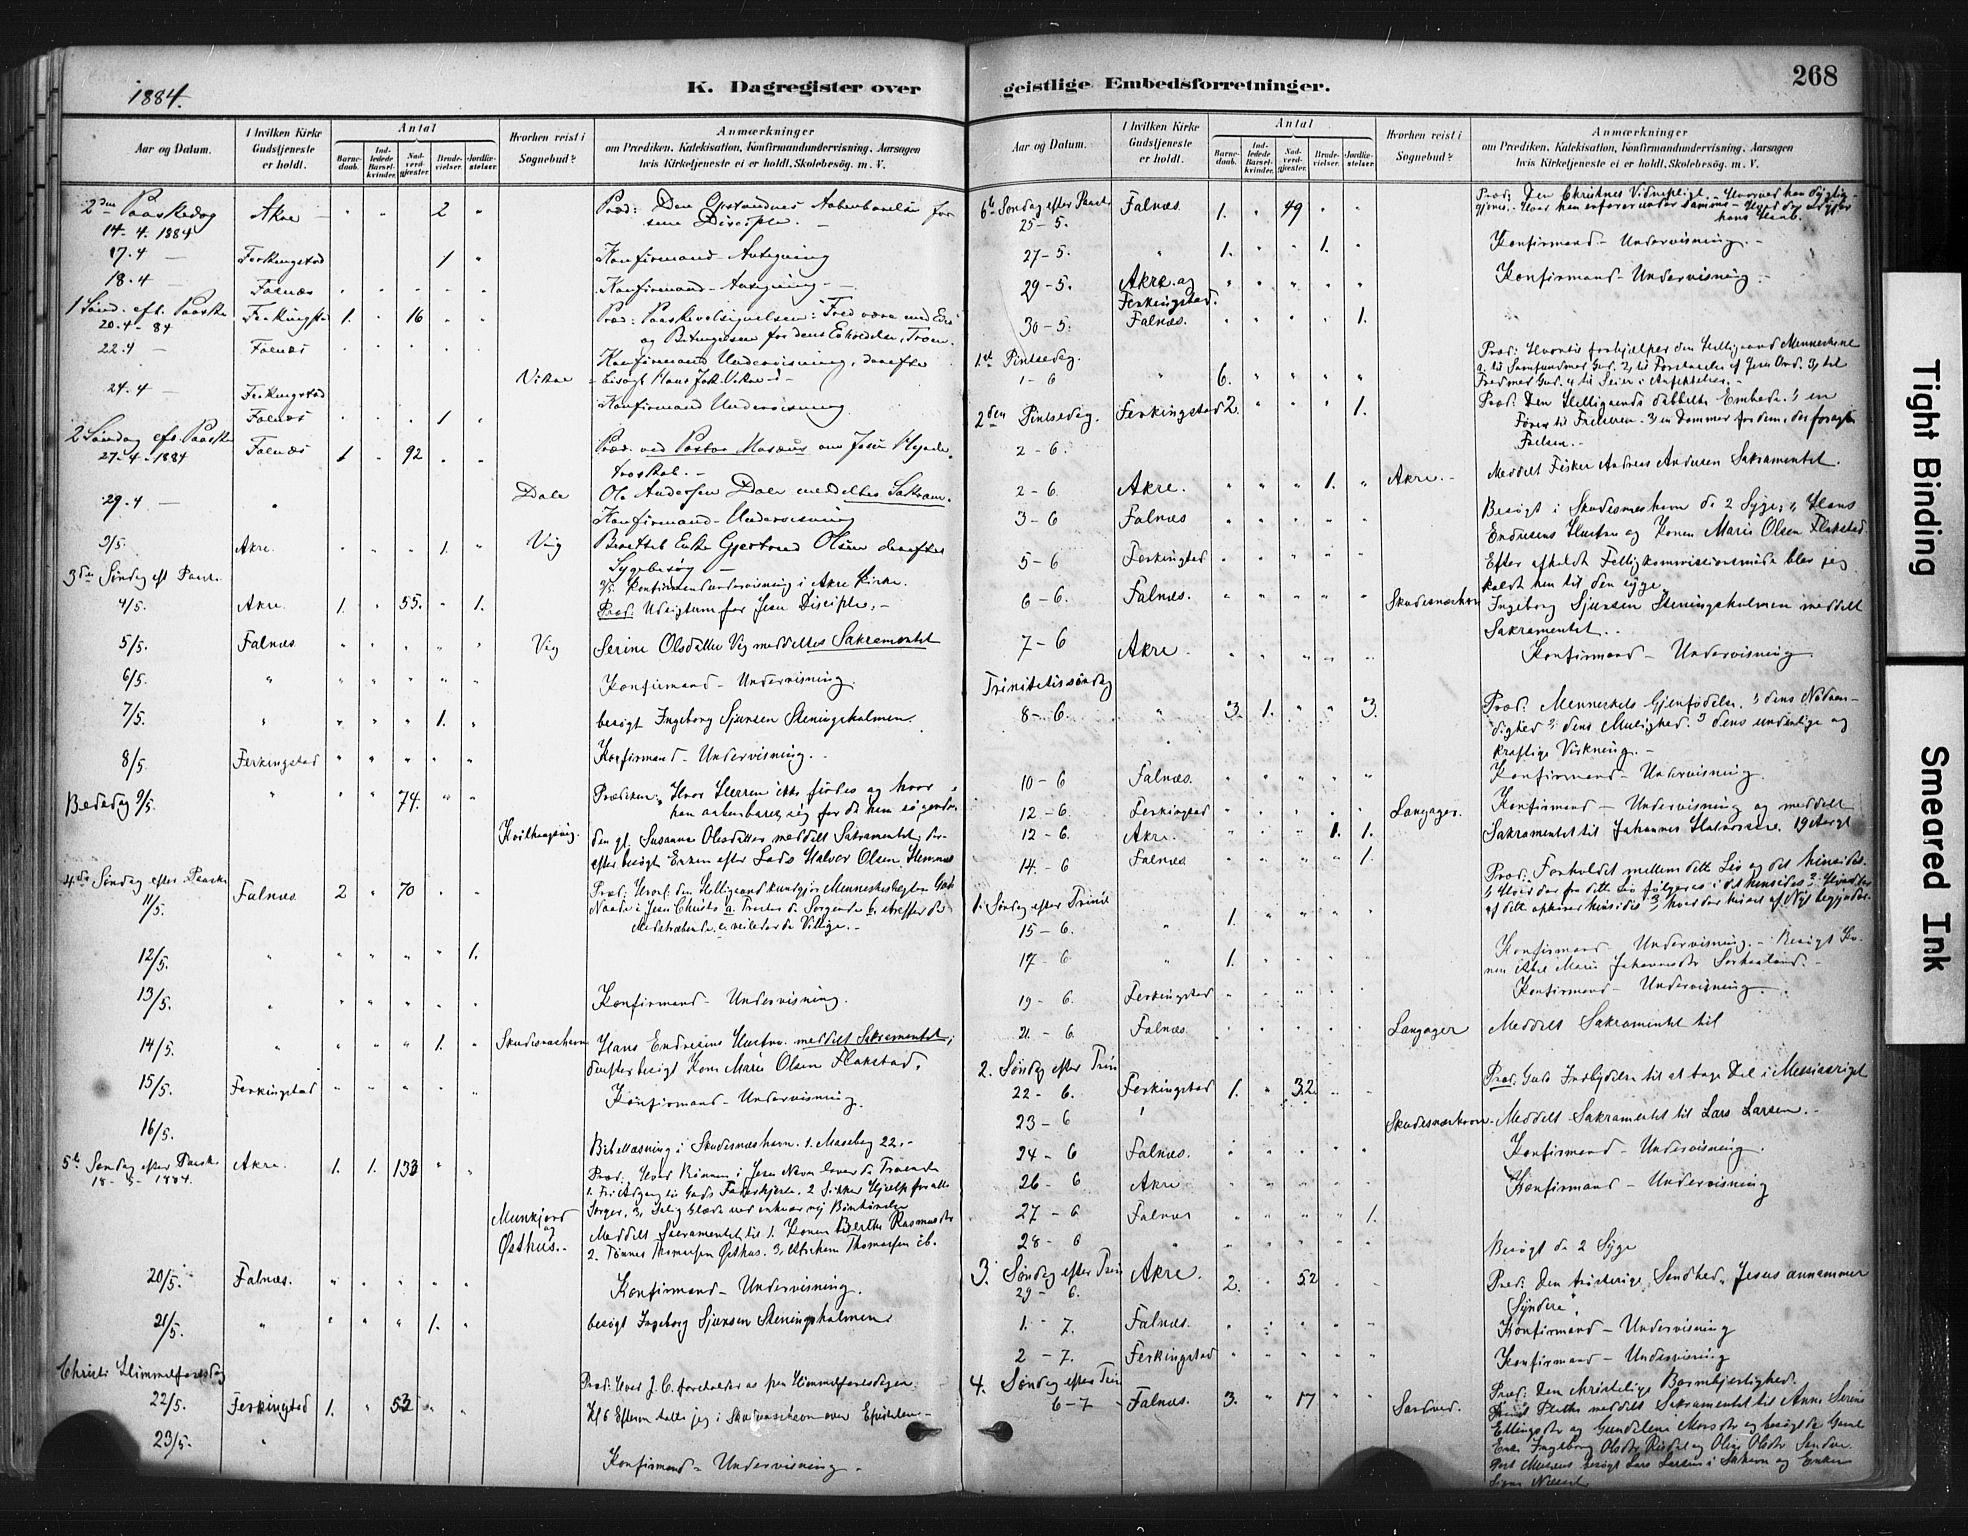 1884.
K. Dagregister over
Aar og Datum.
I hvilken Kirke Gudstjeneste er holdt.
Antal
Barnedaab.
Indledede Barselkvinder.
Nadverdgjæster.
Brudevielser.
Jordfæstelser.
Hvorhen reist i Sognebud?
Anmærkninger
om Prædiken, Katekisation, Konfirmandundervisning, Aarsagen
hvis Kirketjeneste ei er holdt, Skolebesøg. m. V.
2den Paaskedag Akre " " " 2 " Præd: Den Opstandnes Aabenbarelse for
14-4-1884 sine Disciple. —
17.4 — Ferkingstad 1 " Konfirmand-Antegning
18.4 — Falnæs Konfirmand-Antegning —
1 Sønd. eft. Paaske Ferkingstad 1. " 16 " " Præd: Paaskevelsignelsen: Fred være med Eder
20.4-84 og Betingelsen for dens Erholdelse, Troen.
22.4 — Falnæs Konfirmand Undervisning, derefter
Vikre besøgt Hans Jak. Vikre
24.4 — Ferkingstad Konfirmand Undervisning.
Falnæs 1
2 Søndag eft. Paaske Falnæs 1 " 92 " " Præd. ved Pastor Musæus om Jesu Hyrde-
27-4-1884 troskab. —
29.4 — " Dale Ole Andersen Dale meddeltes Sakram.
Konfirmand-Undervisning
2/5. Akre. " " " 1. " Veig Berettet Enke Gjertrud Olsen derefter
Sygebesøg —
3die Søndag eft Paaske. 2/5. Konfirmandundervisning i Akre Kirke.
4/5. Akre. 1. " 55. " 1. Præd: Udsigten for Jesu Disciple. —
5/5. Falnæs Vig Serine Olsdatter Vig meddeltes Sakramentet
6/5. " Konfirmand-Undervisning.
7/5. " " " " 1. " besøgt Ingeborg Sjursen Steningsholmen.
8/5. Ferkingstad Konfirmand-Undervisning.
Bededag 9/5. " " " 74. " " Prædiken: Hvor Herren ikke findes og hvor
han aabenbarer sig for de ham søgende.
den gl. Susanna Olesdatter meddelt Sakramentet; der-
efter besøgt Enken efter Lods Halvor Olsen Hemnes
4de Søndag efter Paaske Falnæs 2 " 70 " " Præd.: Hvorl. den Helligaand kundgjør Menneskeslægten Guds
11/5. Naade i Jesu Christo a. Trøster de Sørgende b. straffer de
Modstræbende. c. veileder de Villige. —
12/5. " " " " " 1.
13/5. " Konfirmand-Undervisning.
14/5. " " " " 1. " Skudesneshavn Hans Endresens Hustru meddelt Sakramentet;
derefter besøgt Kone Marie Olsen Flakstad.
15/5. Ferkingstad Konfirmand-Undervisning.
16/5. Bibellæsning i Skudesneshavn. 1. Mosebog 22. —
5te Søndag efter Paaske Akre. 1. 1. 133 " " Præd. Hvad Bønnen i Jesu Navn lover de Troende
18-5-1884. 1. Fri Adgang til Guds Faderhjerte. 2 Sikker Hjælp for alle
Sorger. 3, Salig Glæde ved enhver ny Bønhørelse
Munkjord Meddelt Sacramentet til 1. Konen Berthe Rasmusdtr
og Østhus. 2. Tønnes Thomasen Østhus. 3,
20/5. Falnæs. " " " " " Konfirmand-Undervisning.
21/5. " " " " 1. " besøgt Ingeborg Sjursen Steningsholmen.
Christi Himmelfartsdag Præd: Hvad J. C. foreholder os paa Himmelfartsdagen.
22/5. Ferkingstad 1. " 53 " " Kl 6 Efterm talte jeg i Skudesneshavn over Epistelen. —
23/5. " Konfirmand-Undervisning.
geistlige Embedsforretninger.
268
Aar og Datum.
I hvilken Kirke Gudstjeneste er holdt.
Antal
Barnedaab.
Indledede Barselkvinder.
Nadverdgjæster.
Brudevielser.
Jordfæstelser.
Hvorhen reist i Sognebud?
Anmærkninger
om Prædiken, Katekisation, Konfirmandundervisning, Aarsagen
hvis Kirketjeneste ei er holdt, Skolebesøg. m. V.
6te Søndag efter Paaske Falnæs. 1. " 49 " " Præd: Den Christnes Vidnepligt. — Hvorved han dygtig-
25-5. gjøres. — Hvad han erfarer under samme —
hans Haab.
27-5. " 1. " " 1. " Konfirmand-Undervisning. —
29-5. Akre og Konfirmand-Undervisning —
Ferkingstad.
30-5. Falnæs. " " " " 1.
1ste Pintsedag. Præd. Hvortil forhjælper den Helligaand Menneskene
1-6 " 6. " " " " a. til Samfund med Gud. 2, til Forstaaelse af Jesu Ord. 3, til
Fred med Gud. 4 til Seier i Anfektelser. —
2den Pintsedag. Ferkingstad 2. " " " 1. Præd. Den Helligaands dobbelte Embede. 1 en
2-6. Fører til Frelseren. 2 en Dommer for dem, der foragte
Frelsen. —
2-6 Akre. " " " 1. " Akre. — Meddelt Fisker Andreas Andersen Sakramentet.
3-6 Falnæs Besøgt i Skudesneshavn de 2 Syge, Hans
Endresens Hustru og Konen Marie Olsen Flakstad.
5-6 Ferkingstad Efter afholdt Fattigkommissionsmøde blev jeg
kaldt hen til den syge
6-6. Falnæs. Skudesneshavn Ingeborg Sjursen Steningsholmen meddelt
Sakramentet.
7-6 Akre. Konfirmand-Undervisning.
Trinitatissøndag
8-6. " 3. 1. " " 3. Præd. Menneskets Gjenfødelse. 1 dens Nødven-
dighed 2 dens Mulighed. 3 dens underlige og
kraftige Virkning. —
10-6 Falnæs. Konfirmand-Undervisning.
12-6 Ferkingstad Langager. Konfirmand-Undervisning og meddelt
12-6. Akre. " " " 1. 1. Sakramentet til Johannes
14-6 Falnæs " " " " 1.
Præd. Forholdet mellem dette Liv og det hinsides.
1. Søndag efter Trinit 1.
15-6. "
17-6 " 1. Konfirmand-Undervisning. — Besøgt
19-6. Ferkingstad Konfirmand-Undervisning.
21-6 Falnæs. Langager Meddelt Sakramentet til
2. Søndag efter Trin Præd. Guds Indbydelse til at tage Del i Messiasriget
22-6. Ferkingstad 1. " 32 " "
23-6 " Skudesneshavn. Meddelt Sakramentet til Lars Larsen. —
24-6 Falnæs. Konfirmand-Undervisning.
26-6 Akre. Konfirmand-Undervisning
27-6 Falnæs " " " " 1.
28-6 " Besøgt de 2 Syge
3. Søndag efter Trin Akre. 2. " 52 Præd. Den trøsterige Sandhed, Jesus annammer
29-6. Syndere".
1.-7. Falnæs. Konfirmand-Undervisning
2-7. Ferkingstad Konfirmand-Undervisning
4. Søndag efter Trin Præd. Den christelige Barmhjertighed.
6-7 Falnæs. 3. " 17 " " Sandved. meddelt Sakramentet til Anne Serine
Ellingsdtr og Gundelene Mosdtr og besøgt de Gamle
Enke Ingeborg Olsdtr og Oline Olsdtr Sandve
Past Musæus besøgt Lars Larsen i Skhavn og Enken
Signe
Tight Binding
Smeared Ink